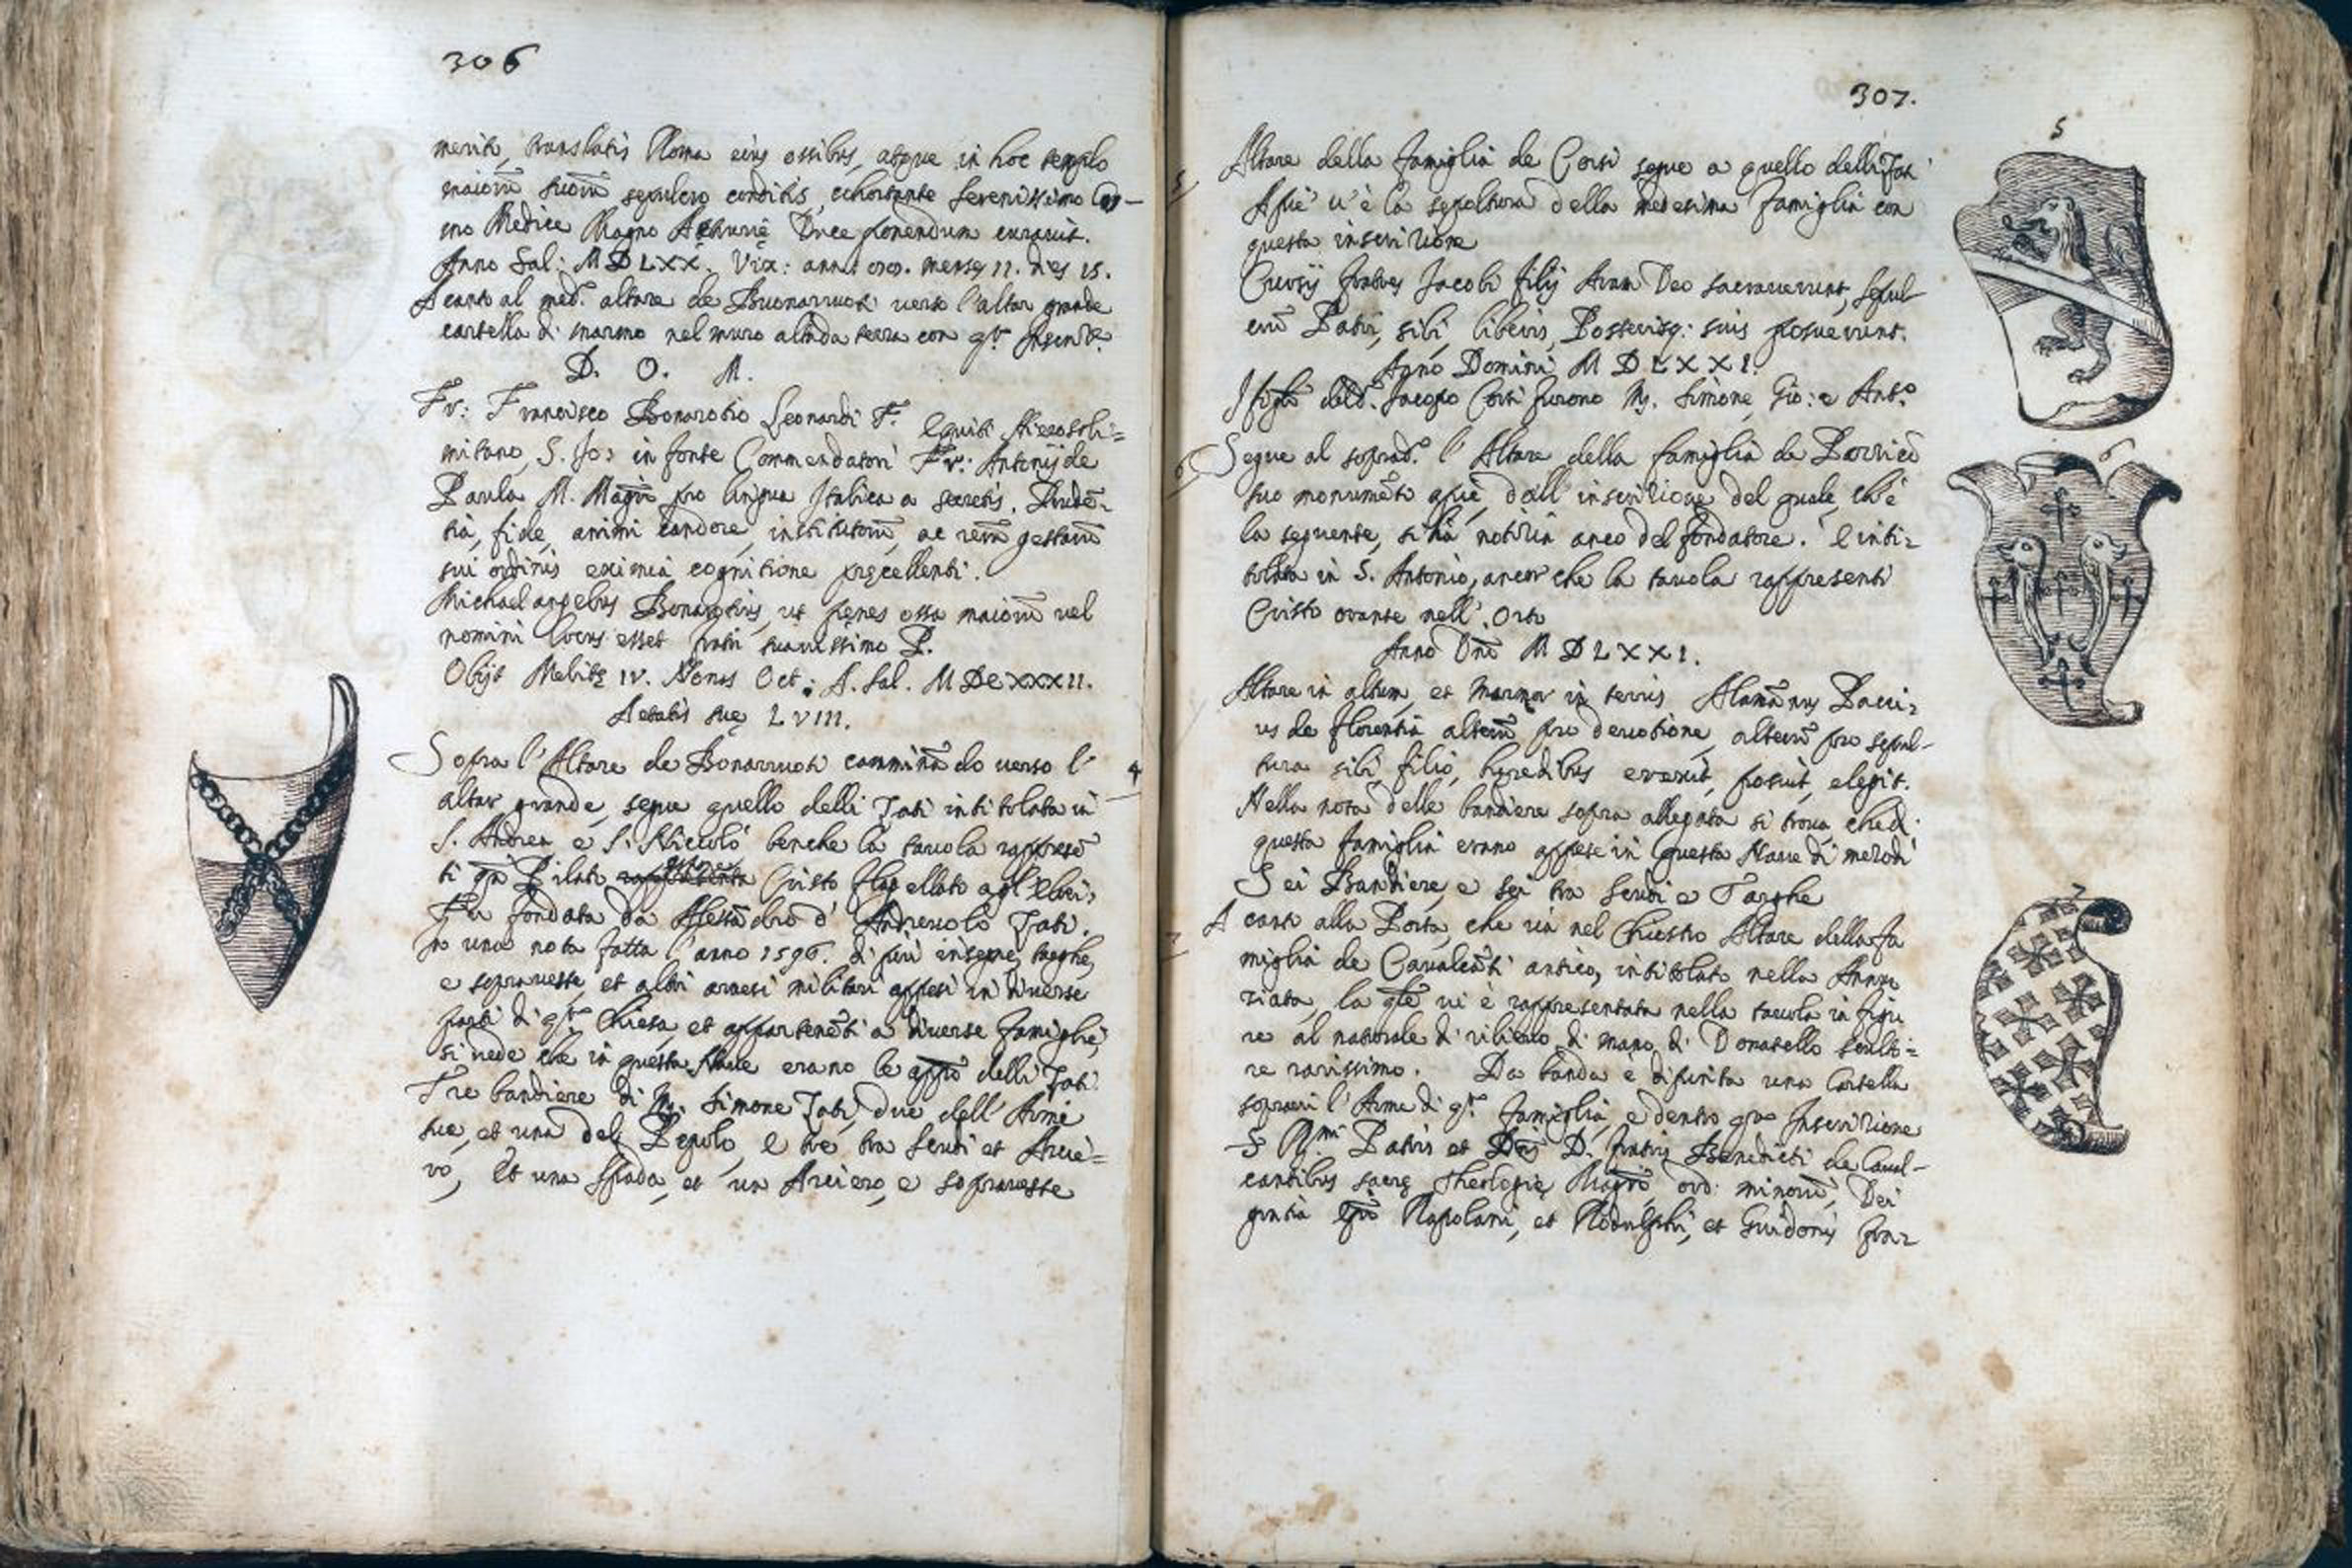 306
merito, translatis Roma eius ossibus, atque in hoc templo
maiorū suorū sepulcro conditis, cohortante Serenissimo Cos-
mo Medice Magno Hetrurie Duce ponendum curavit.
Anno Sal: MDLXX. Vix: ann: mens: 11. dies 15.
A canto al med.º altare de Buonarruoti verso l'altar grande
cartella di marmo nel muro alta da terra con q.ta Inscriz.e
D. O. M.
Fr: Francisco Bonarotio Leonardi F. Equiti Hierosoli=
mitano, S. Jo: in fonte Commendatori Fr: Antonij de
Paula M. Magri pro lingua Italica a secretis. Prudē-
tia, fide, animi candore, institutorū, ac rerū gestarū
sui ordinis eximia cognitione precellenti.
Michael angelus Bonarotius, ut penes ossa maiorū vel
nomini locus esset fratri suavissimo P.
Obijt Melitę IV. Nonas Oct: A. Sal. MDCXXXII.
Aetatis suę LVIII.
Sopra l'Altare de Bonarruoti camminādo verso l' 4
altar grande, segue quello delli Zati intitolato in
S. Andrea e S. Niccolò benche la tavola rappresē
ti Pilato Cristo flagellato agl'Ebrei,
Fu fondata da Alessādro d'Andreuolo Zati.
In una nota fatta l'anno 1596. di più insegne, targhe,
e sopraveste, et altri arnesi militari appesi in diverse
parti di q.ta Chiesa, et appartenēti a diverse famiglie,
si vede che in questa Nave erano le app.o delli Zati
Tre bandiere di M. Simone Zati, due dell'Arme
sue, et una del Popolo, e tre tra scudi et Arcie=
ro, Et una Spada, et un Arciero, e sopraveste
307.
5 Altare della famiglia de Corsi segue a quello delli Zati
A piè v'è la sepoltura della medesima famiglia con
questa inscrizione
Cursij fratres Jacobi filij Aram Deo sacraverunt, sepul-
crū Patri, sibi, liberis, Posterisq: suis posuerunt.
Anno Domini MDLXXI.
I figli del d.º Jacopo Corsi furono M. Simone, Gio: e Ant.º
6 Segue al soprad.º l'Altare della famiglia da
suo monumēto a piè, dall'inscrizione del quale, ch'è
la seguente, si hà notizia anco del fondatore. È inti=
tolata in S. Antonio, ancor che la tavola rappresenti
Cristo orante nell'Orto
Anno Dñi MDLXXI.
Altare in altum, et marmor in terris Alamānus Pacci=
us de florentia alterū pro devotione, alterū pro sepul-
tura sibi, filio, hęredibus erexit, posuit, elegit.
Nella nota delle bandiere sopra allegata si trova, che di
questa famiglia erano appese in questa Nave di
Sei Bandiere, e sei tra scudi e Targhe
7 A canto alla Porta, che và nel Chiostro Altare della fa
miglia de Cavalcāti antico, intitolato nella Annun
ziata, la qle vi è rappresentata nella tavola in figu
re al naturale di rilievo di mano di Donatello sculto=
re rarissimo. Da banda è dipinta una Cartella
sopravi l'Arme di q.ta famiglia, e dentro q.ta Inscrizione
S R.mi Patris et Dñi D. fratris Benedicti de Caval-
cantibus sacrę Theologię Magrō ord: minorū, Dei
gratia Rapolani, et Rodulphi, et Guidonis fra=
5
6
7